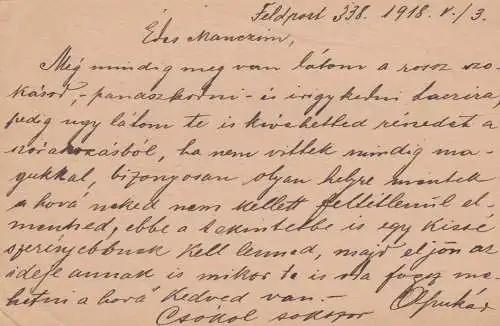 Feldpost 338. 1918. V./3.
Édes Manczim,
Még mindig meg van látom a rossz szo-
kásod, - panaszkodni - és irigykedni Laczira
pedig ugy látom te is kivehetted részedet a
szórakozásból, ha nem vittek mindig ma-
gukkal, bizonyosan olyan helyre mentek
a hová neked nem kellett feltétlenül el-
menned, ebbe a tekintetbe is egy kissé
szerényebbnek kell lenned, majd eljön az
ideje annak is mikor te is oda fogsz me-
hetni a hová kedved van. -
Csókol sokszor Apukád